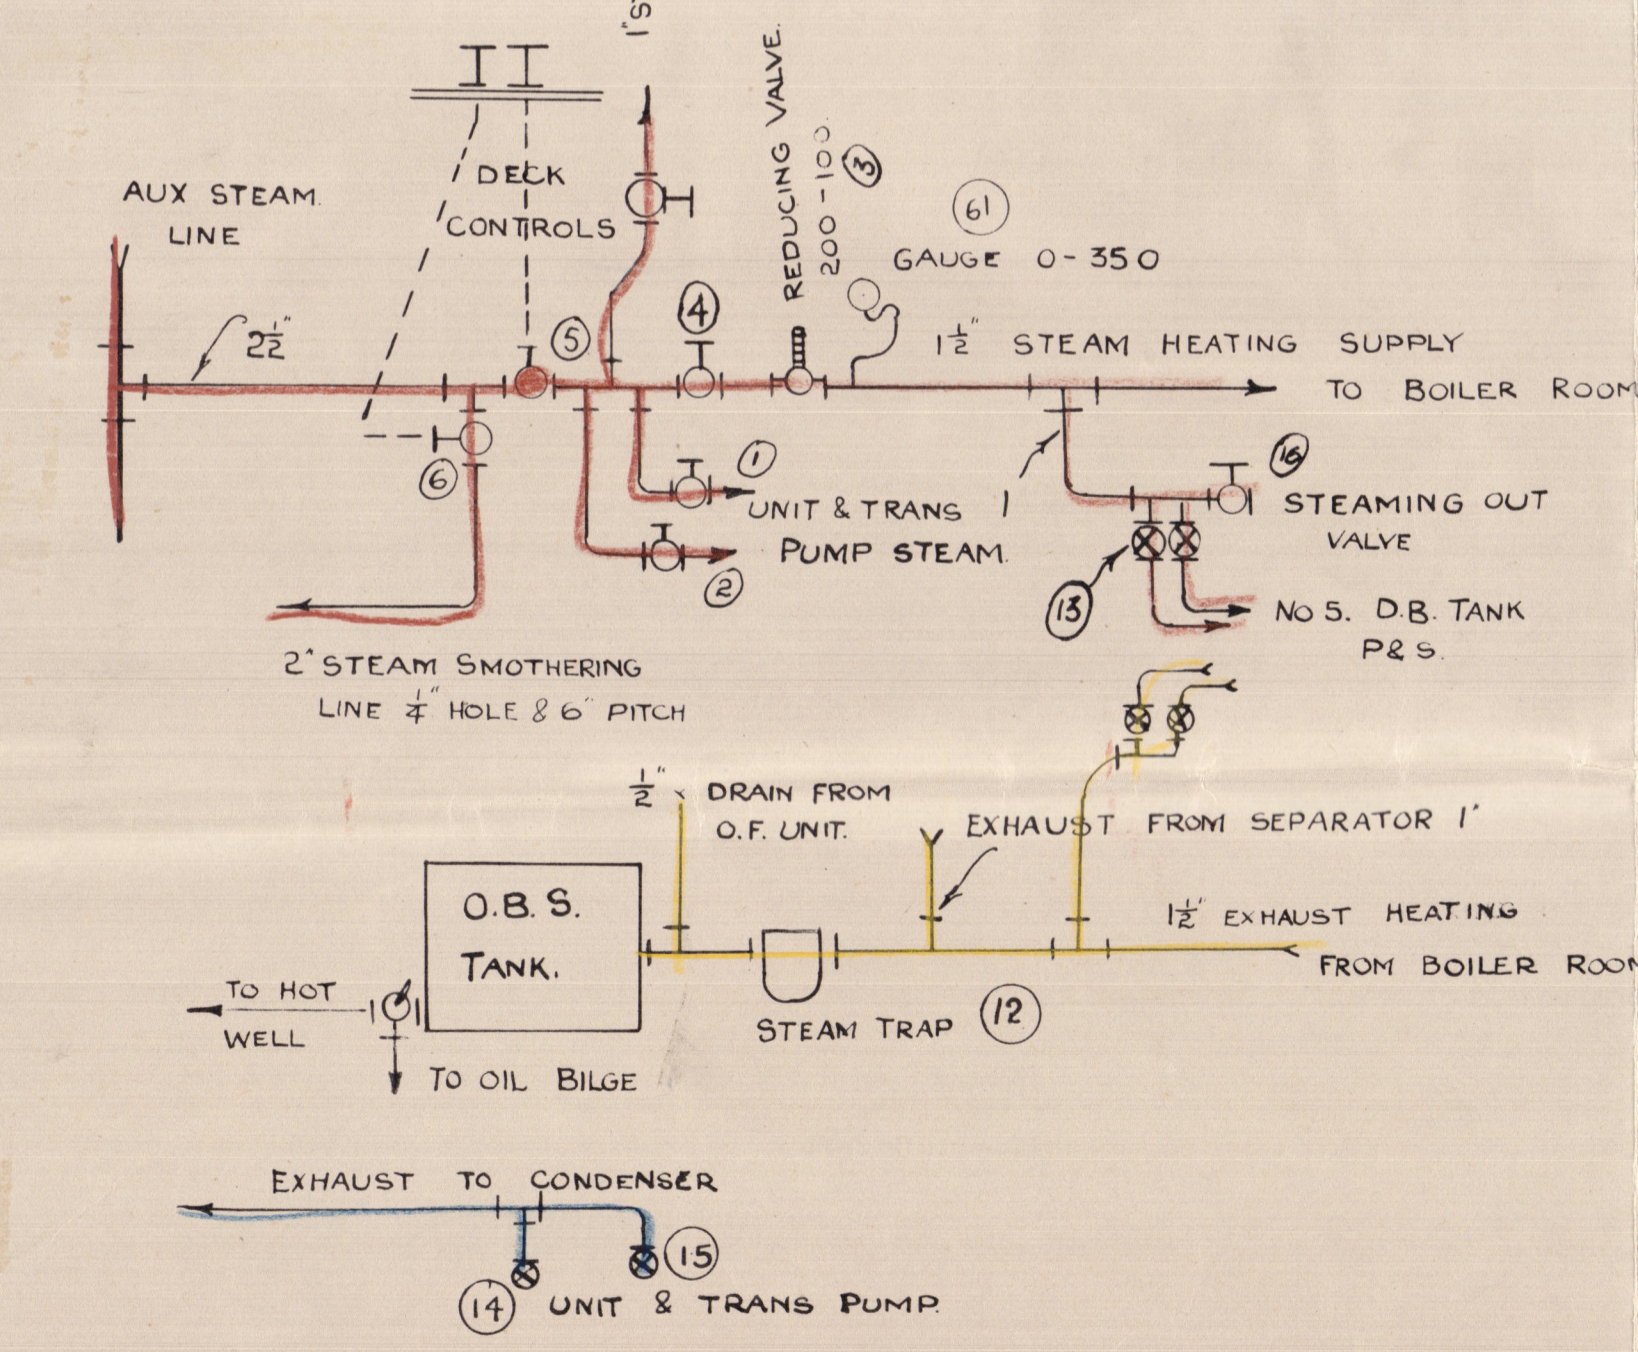 1"S
DECK
CONTROLS
AUX STEAM.
LINE
2½"
REDUCING VALVE.
200-100
3
61
GAUGE 0-350
5
4
1½" STEAM HEATING SUPPLY
TO BOILER ROOM
6
1
UNIT & TRANS
PUMP STEAM.
2
1
16
STEAMING OUT
VALVE
13
NO 5. D.B. TANK
P & S.
2" STEAM SMOTHERING
LINE ¼" HOLE & 6" PITCH
½" DRAIN FROM
O.F. UNIT.
EXHAUST FROM SEPARATOR 1"
O.B.S.
TANK.
1½" EXHAUST HEATING
FROM BOILER ROOM
STEAM TRAP 12
TO HOT
WELL
TO OIL BILGE
EXHAUST TO CONDENSER
15
14 UNIT & TRANS PUMP.